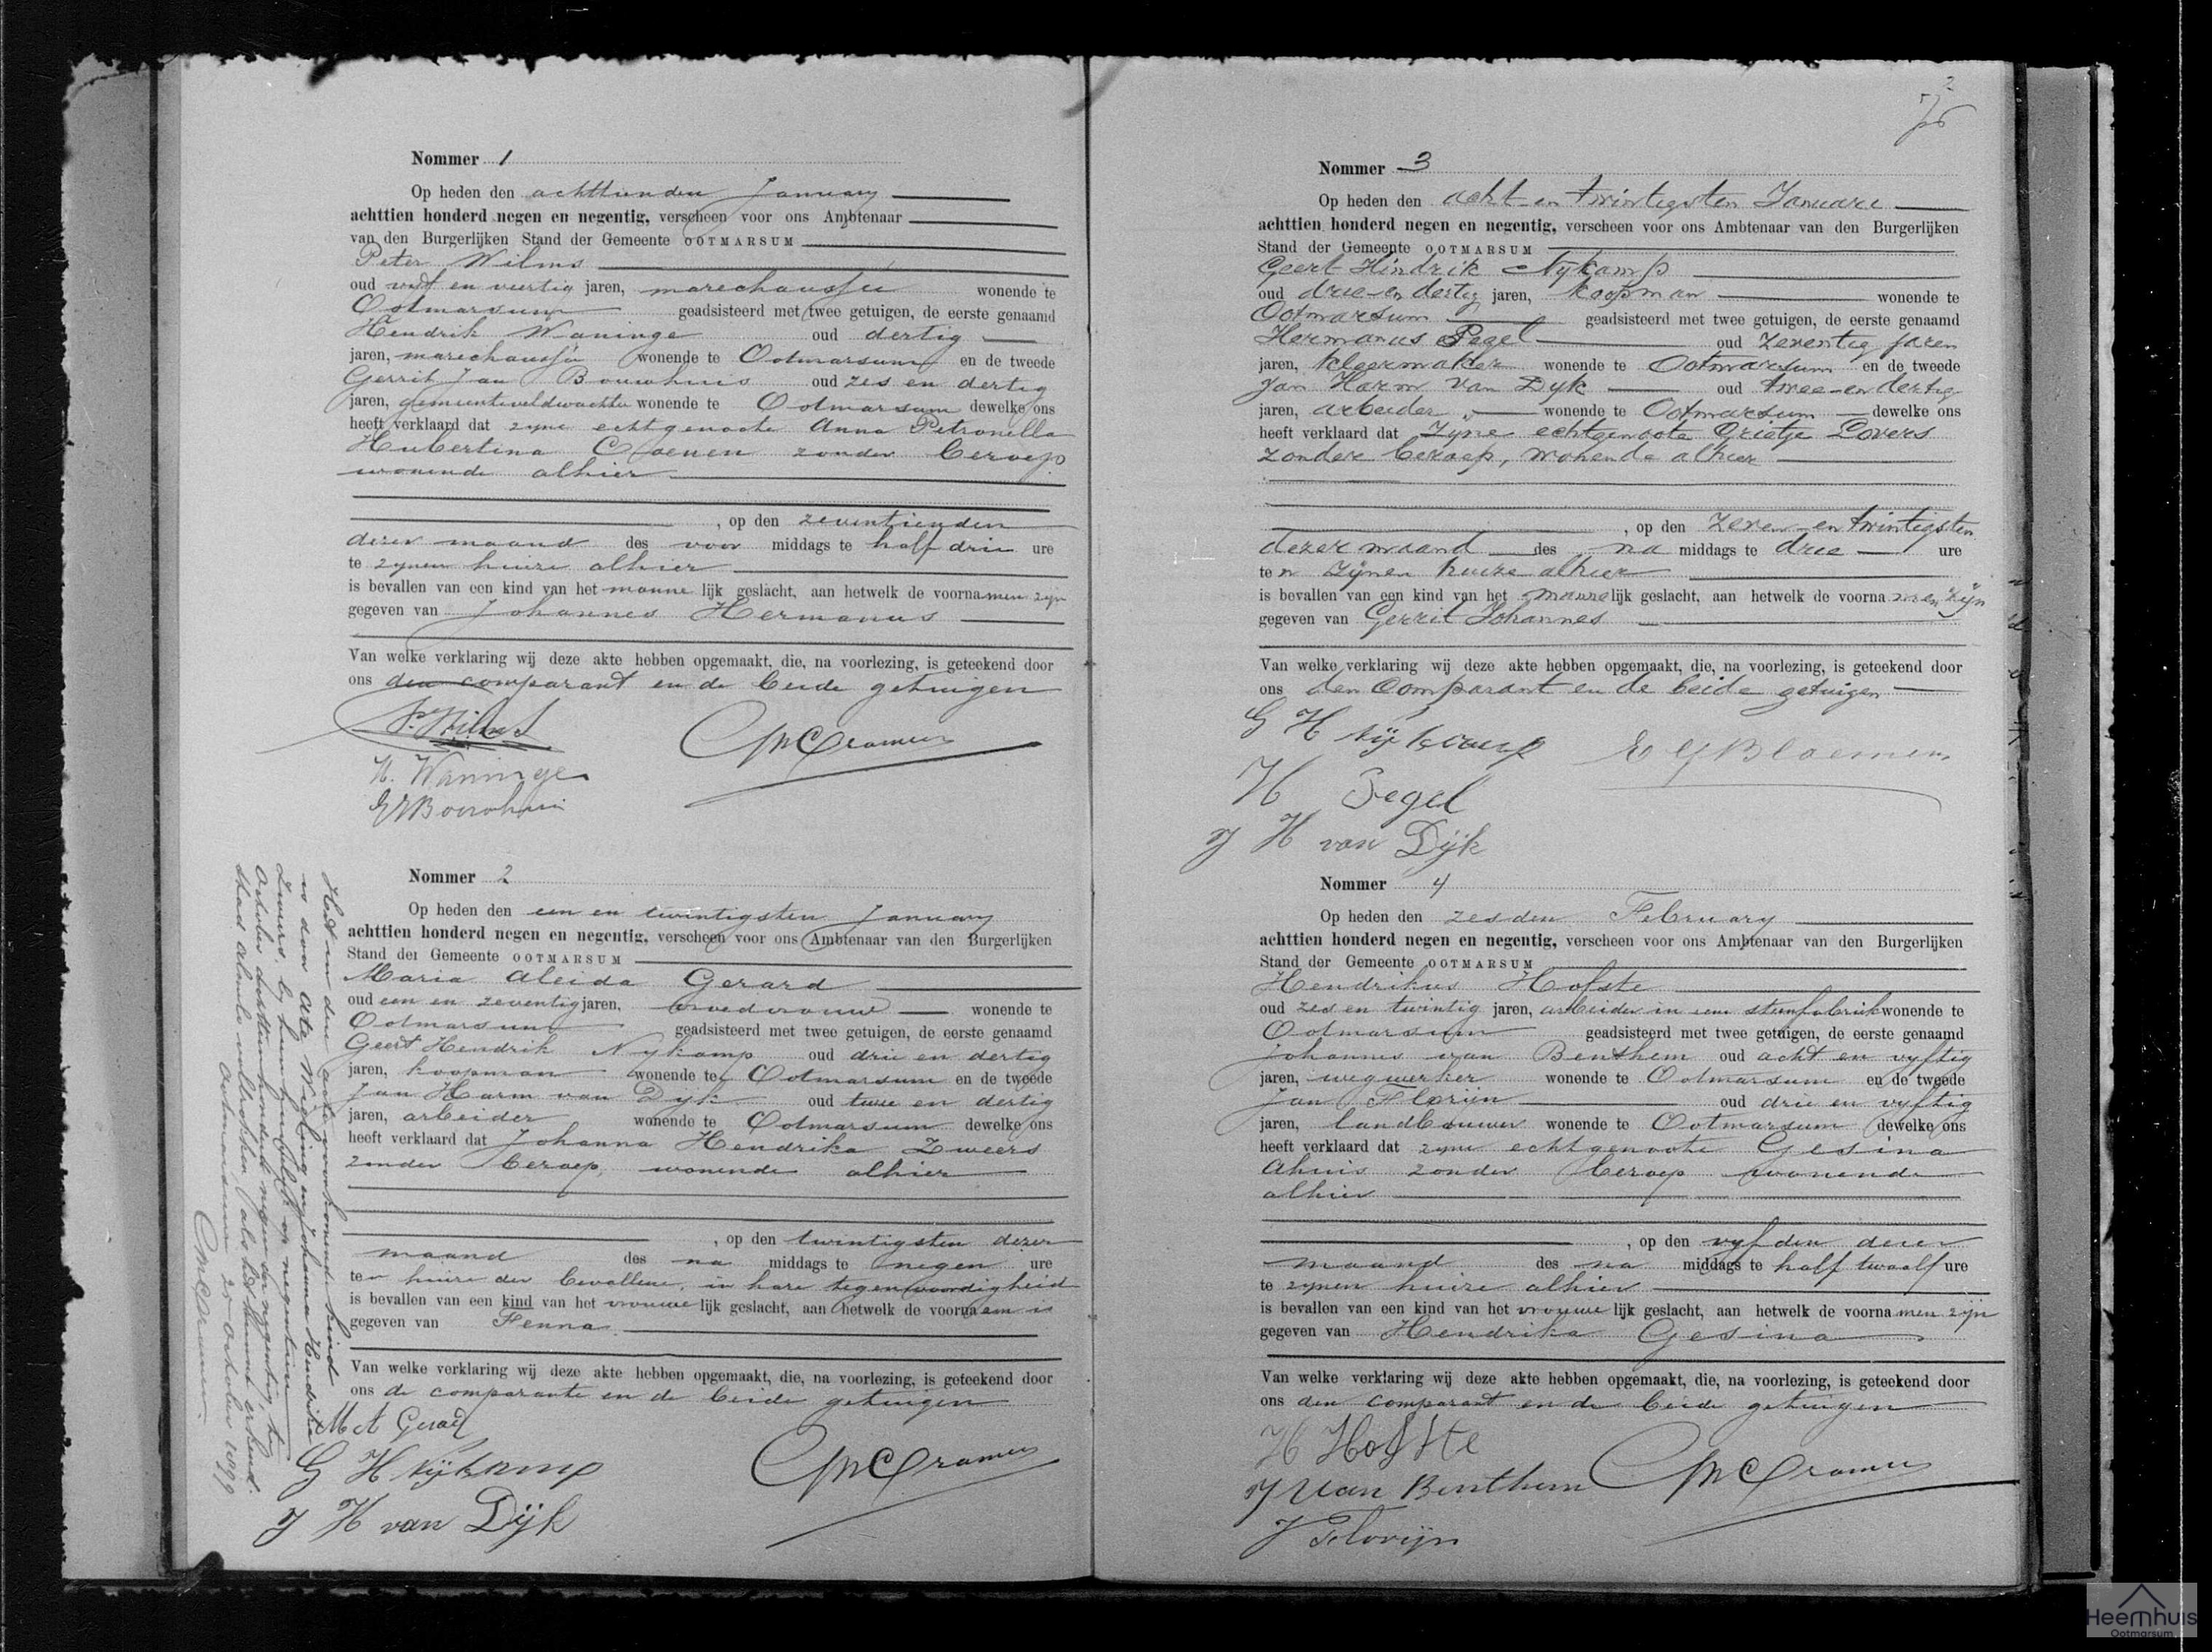 Nommer 1
Op heden den achttienden January
achttien honderd negen en negentig, verscheen voor ons Ambtenaar
van den Burgerlijken Stand der Gemeente OOTMARSUM
Peter Wilms
oud en veertig jaren, marechaussée wonende te
Ootmarsum geadsisteerd met twee getuigen, de eerste genaamd
Hendrik Waninge oud dertig
jaren, marechaussée wonende te Ootmarsum en de tweede
Gerrit Jan Bouwhuis oud zes en dertig
jaren, gemeenteveldwachter wonende te Ootmarsum dewelke ons
heeft verklaard dat zyne echtgenoote Anna Petronella
Hubertina Coenen zonder beroep
wonende alhier
, op den zeventienden
dezer maand des voor middags te half drie ure
te zynen huize alhier
is bevallen van een kind van het manne lijk geslacht, aan hetwelk de voornamen zyn
gegeven van Johannes Hermanus
Van welke verklaring wij deze akte hebben opgemaakt, die, na voorlezing, is geteekend door
ons den comparant en de beide getuigen
P. Wilms
CMCramer
H. Waninge
GJBouwhuis
Nommer 2
Op heden den een en twintigsten January
achttien honderd negen en negentig, verscheen voor ons Ambtenaar van den Burgerlijken
Stand der Gemeente OOTMARSUM
Maria Aleida Gerard
oud een en zeventig jaren, vroedvrouw wonende te
Ootmarsum geadsisteerd met twee getuigen, de eerste genaamd
Geert Hendrik Nykamp oud drie en dertig
jaren, koopman wonende te Ootmarsum en de tweede
Jan Harm van Dyk oud twee en dertig
jaren, arbeider wonende te Ootmarsum dewelke ons
heeft verklaard dat Johanna Hendrika Zweers
zonder beroep, wonende alhier
, op den twintigsten dezer
maand des na middags te negen ure
ten huize der bevallene, in hare tegenwoordigheid
is bevallen van een kind van het vrouwe lijk geslacht, aan hetwelk de voornaam is
gegeven van Fenna
Van welke verklaring wij deze akte hebben opgemaakt, die, na voorlezing, is geteekend door
ons de comparante en de beide getuigen
M A Gerard
G H Nijkamp
CMCramer
J H van Dijk
Het in deze acte voorkomende kind
is door Ate Wieling en Johanna Hendrika
Zweers, by hun huwelijk op negentien
October achttienhonderd negen en negentig, te
Stad Almelo voltrokken, als het hunne erkend.
Ootmarsum 25 October 1899
CMCramer
Nommer 3
Op heden den acht en twintigsten Januari
achttien honderd negen en negentig, verscheen voor ons Ambtenaar van den Burgerlijken
Stand der Gemeente OOTMARSUM
Geert Hindrik Nijkamp
oud drie en dertig jaren, koopman wonende te
Ootmarsum geadsisteerd met twee getuigen, de eerste genaamd
Hermanus Pegel oud zeventig jaren
jaren, kleermaker wonende te Ootmarsum en de tweede
Jan Harm van Dyk oud twee en dertig
jaren, arbeider wonende te Ootmarsum dewelke ons
heeft verklaard dat zyne echtgenoote Grietje Lovers
zonder beroep, wonende alhier
, op den zeven en twintigsten
dezer maand des na middags te drie ure
te n zijnen huize alhier
is bevallen van een kind van het manne lijk geslacht, aan hetwelk de voorna men zijn
gegeven van Gerrit Johannes
Van welke verklaring wij deze akte hebben opgemaakt, die, na voorlezing, is geteekend door
ons den comparant en de beide getuigen
G H Nijkamp
E G Bloemen
H Pegel
J H van Dijk
Nommer 4
Op heden den zesden February
achttien honderd negen en negentig, verscheen voor ons Ambtenaar van den Burgerlijken
Stand der Gemeente OOTMARSUM
Hendrikus Hofste
oud zes en twintig jaren, arbeider in eene steenfabriek wonende te
Ootmarsum geadsisteerd met twee getuigen, de eerste genaamd
Johannes van Benthem oud acht en vyftig
jaren, wegwerker wonende te Ootmarsum en de tweede
Jan Florijn oud drie en vyftig
jaren, landbouwer wonende te Ootmarsum dewelke ons
heeft verklaard dat zyne echtgenoote Gesina
Ahuis zonder beroep wonende
alhier
, op den vyfden dezer
maand des na middags te half twaalf ure
te zynen huize alhier
is bevallen van een kind van het vrouwe lijk geslacht, aan hetwelk de voorna men zijn
gegeven van Hendrika Gesina
Van welke verklaring wij deze akte hebben opgemaakt, die, na voorlezing, is geteekend door
ons den comparant en de beide getuigen
H Hofste
J van Benthem
CMCramer
J Florijn
Heemhuis
Ootmarsum